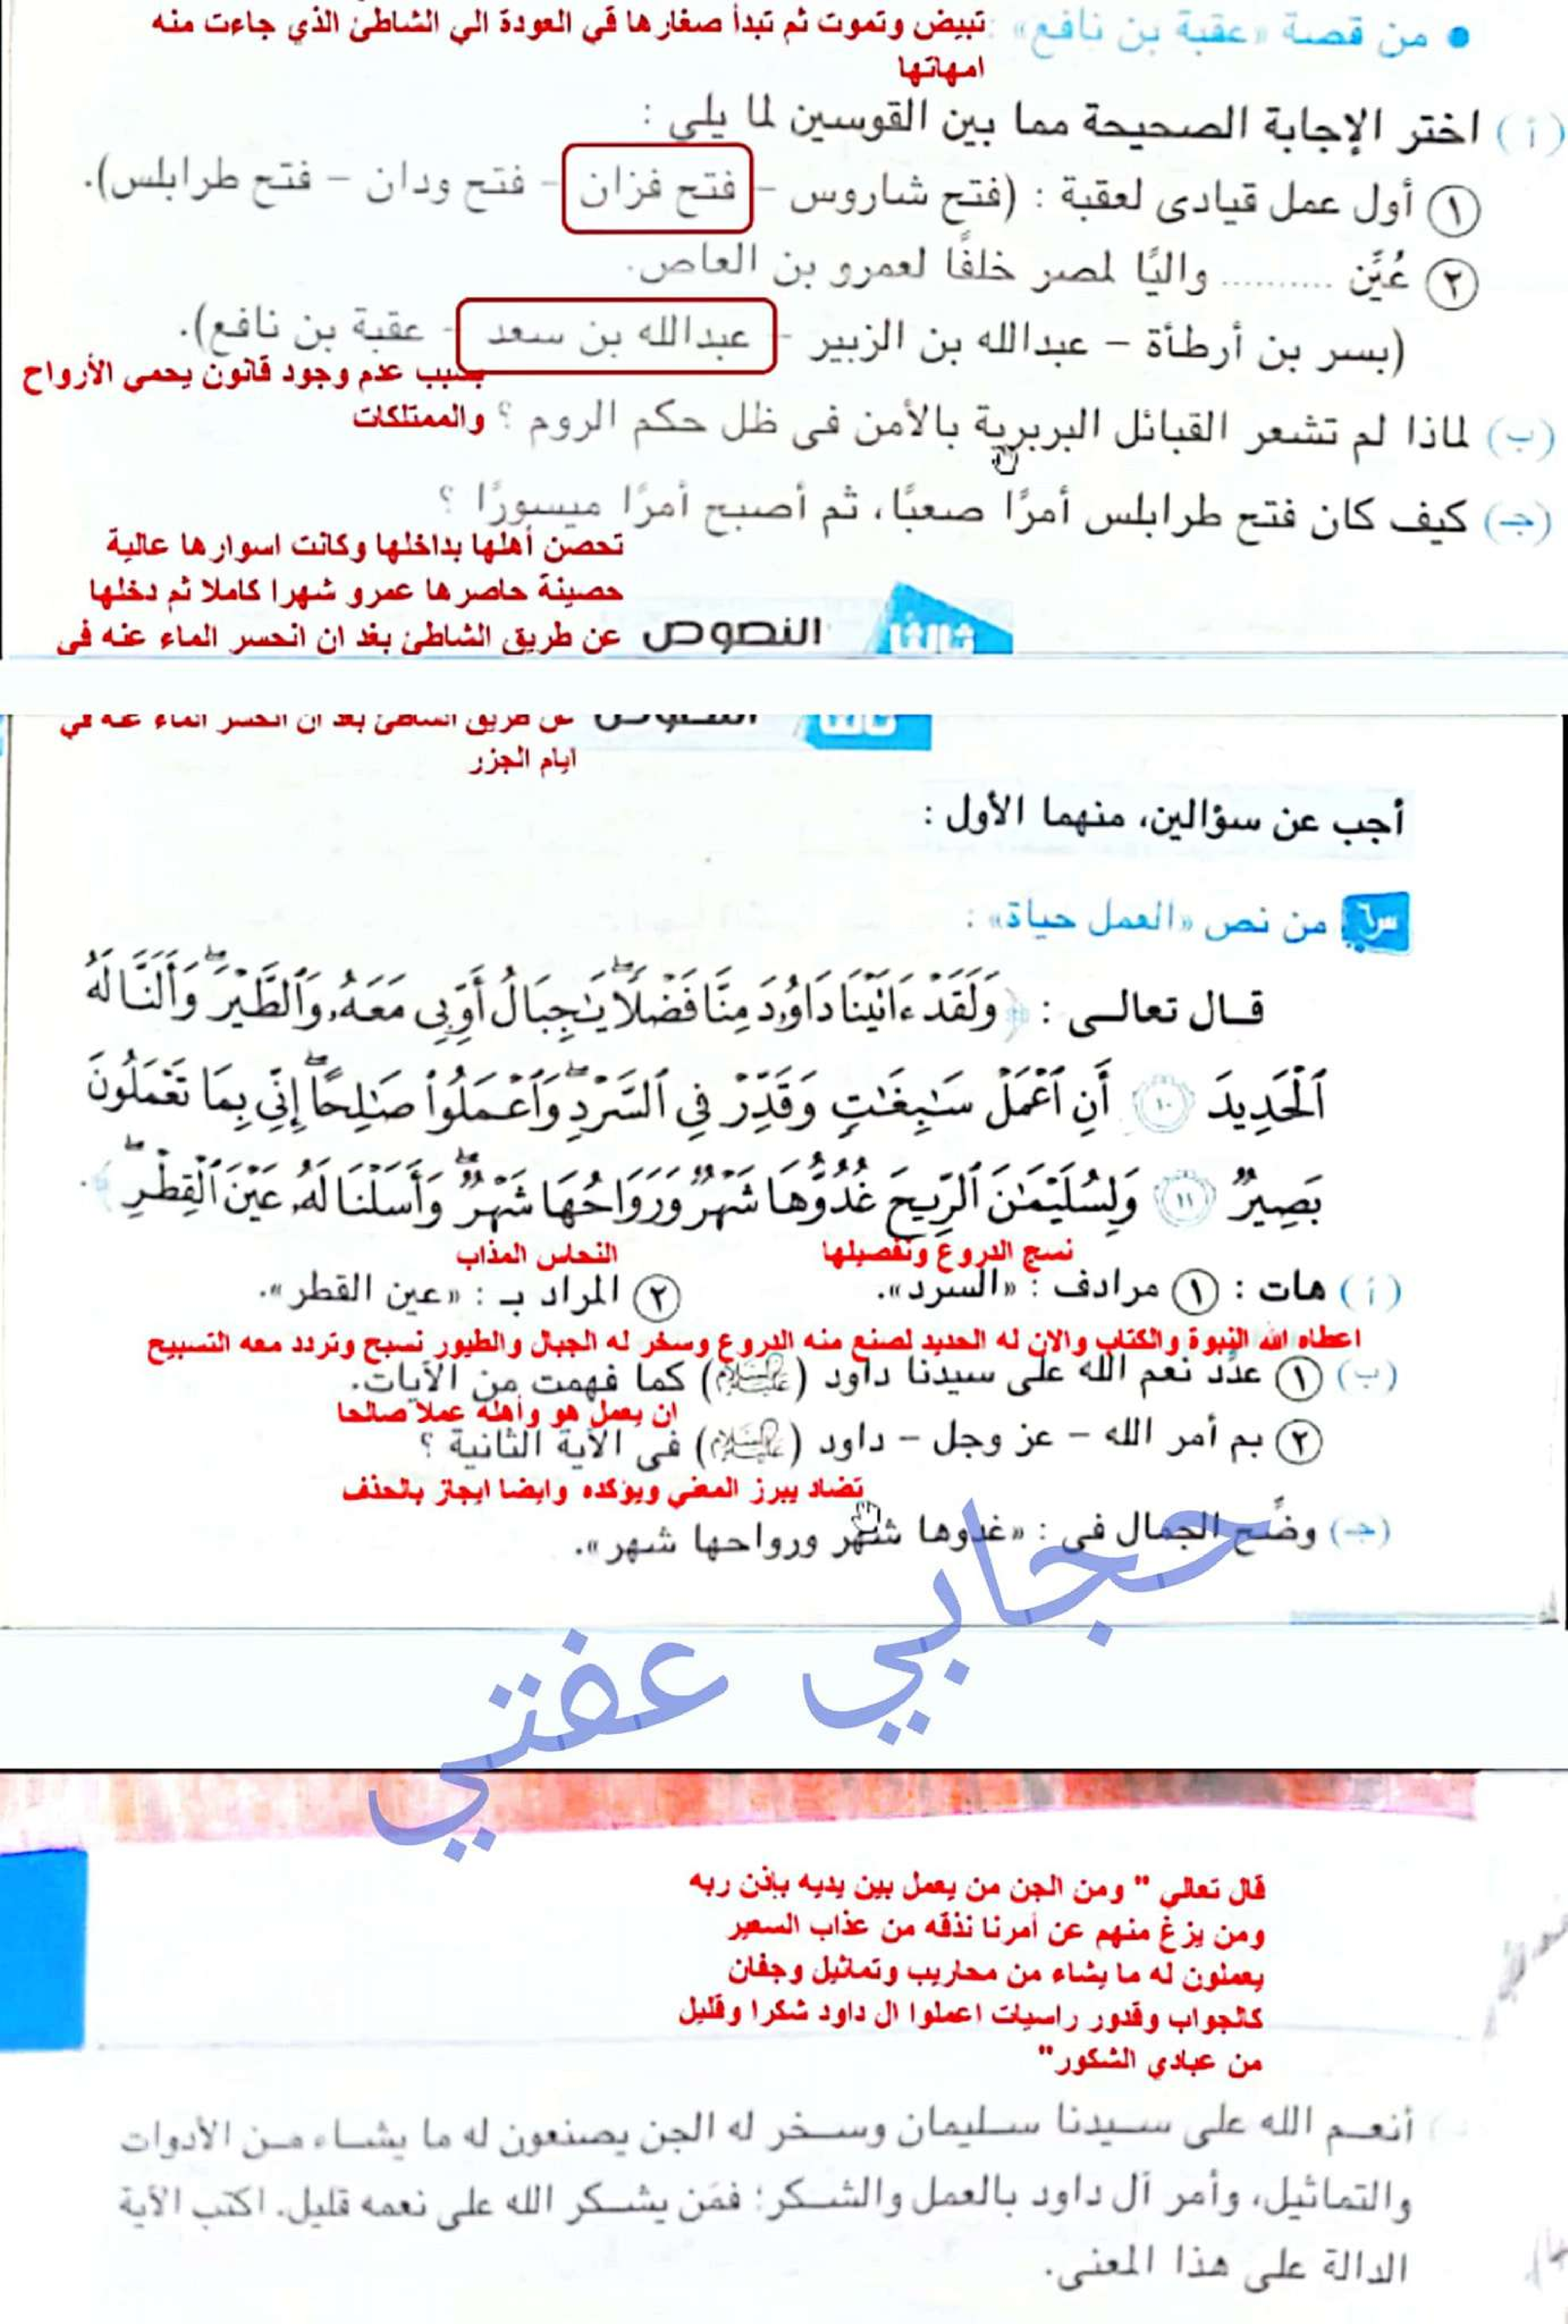 • من قصة «عقبة بن نافع» : تبيض وتموت ثم تبدأ صغارها في العودة الي الشاطئ الذي جاءت منه
امهاتها
(أ) اختر الإجابة الصحيحة مما بين القوسين لما يلي :
١ أول عمل قيادى لعقبة : (فتح شاروس - فتح فزان - فتح ودان - فتح طرابلس).
٢ عُيِّن .......... واليًا لمصر خلفًا لعمرو بن العاص.
(بسر بن أرطأة - عبدالله بن الزبير - عبدالله بن سعد - عقبة بن نافع).
بسبب عدم وجود قانون يحمي الأرواح
والممتلكات
(ب) لماذا لم تشعر القبائل البربرية بالأمن فى ظل حكم الروم ؟
(جـ) كيف كان فتح طرابلس أمرًا صعبًا، ثم أصبح أمرًا ميسورًا ؟
تحصن أهلها بداخلها وكانت اسوارها عالية
حصينة حاصرها عمرو شهرا كاملا ثم دخلها
عن طريق الشاطئ بغد ان انحسر الماء عنه في
ثالثًا النصوص
عن طريق الشاطئ بغد ان انحسر الماء عنه في
ايام الجزر
أجب عن سؤالين، منهما الأول :
س٦ من نص «العمل حياة» :
قـال تعالـى : ﴿ وَلَقَدْ ءَاتَيْنَا دَاوُۥدَ مِنَّا فَضْلًا ۖ يَٰجِبَالُ أَوِّبِى مَعَهُۥ وَٱلطَّيْرَ ۖ وَأَلَنَّا لَهُ
ٱلْحَدِيدَ ١٠ أَنِ ٱعْمَلْ سَٰبِغَٰتٍ وَقَدِّرْ فِى ٱلسَّرْدِ ۖ وَٱعْمَلُوا۟ صَٰلِحًا ۖ إِنِّى بِمَا تَعْمَلُونَ
بَصِيرٌ ١١ وَلِسُلَيْمَٰنَ ٱلرِّيحَ غُدُوُّهَا شَهْرٌ وَرَوَاحُهَا شَهْرٌ ۖ وَأَسَلْنَا لَهُۥ عَيْنَ ٱلْقِطْرِ ۖ ﴾.
نسج الدروع وتفصيلها النحاس المذاب
(أ) هات : ١ مرادف : «السرد». ٢ المراد بـ : «عين القطر».
اعطاه الله النبوة والكتاب والان له الحديد لصنع منه الدروع وسخر له الجبال والطيور نسبح وتردد معه التسبيح
(ب) ١ عدِّد نعم الله على سيدنا داود (عليه السلام) كما فهمت من الآيات.
ان يعمل هو وأهله عملا صالحا
٢ بم أمر الله - عز وجل - داود (عليه السلام) فى الآية الثانية ؟
تضاد يبرز المعني ويؤكده وايضا ايجاز بالحذف
(جـ) وضِّح الجمال فى : «غدوها شهر ورواحها شهر».
حجابي عفتي
قال تعالي " ومن الجن من يعمل بين يديه بإذن ربه
ومن يزغ منهم عن أمرنا نذقه من عذاب السعير
يعملون له ما يشاء من محاريب وتماثيل وجفان
كالجواب وقدور راسيات اعملوا ال داود شكرا وقليل
من عبادي الشكور"
أنعـم الله على سـيدنا سـليمان وسـخر له الجن يصنعون له ما يشـاء مـن الأدوات
والتماثيل، وأمر آل داود بالعمل والشـكر؛ فمَن يشـكر الله على نعمه قليل. اكتب الآية
الدالة على هذا المعنى.